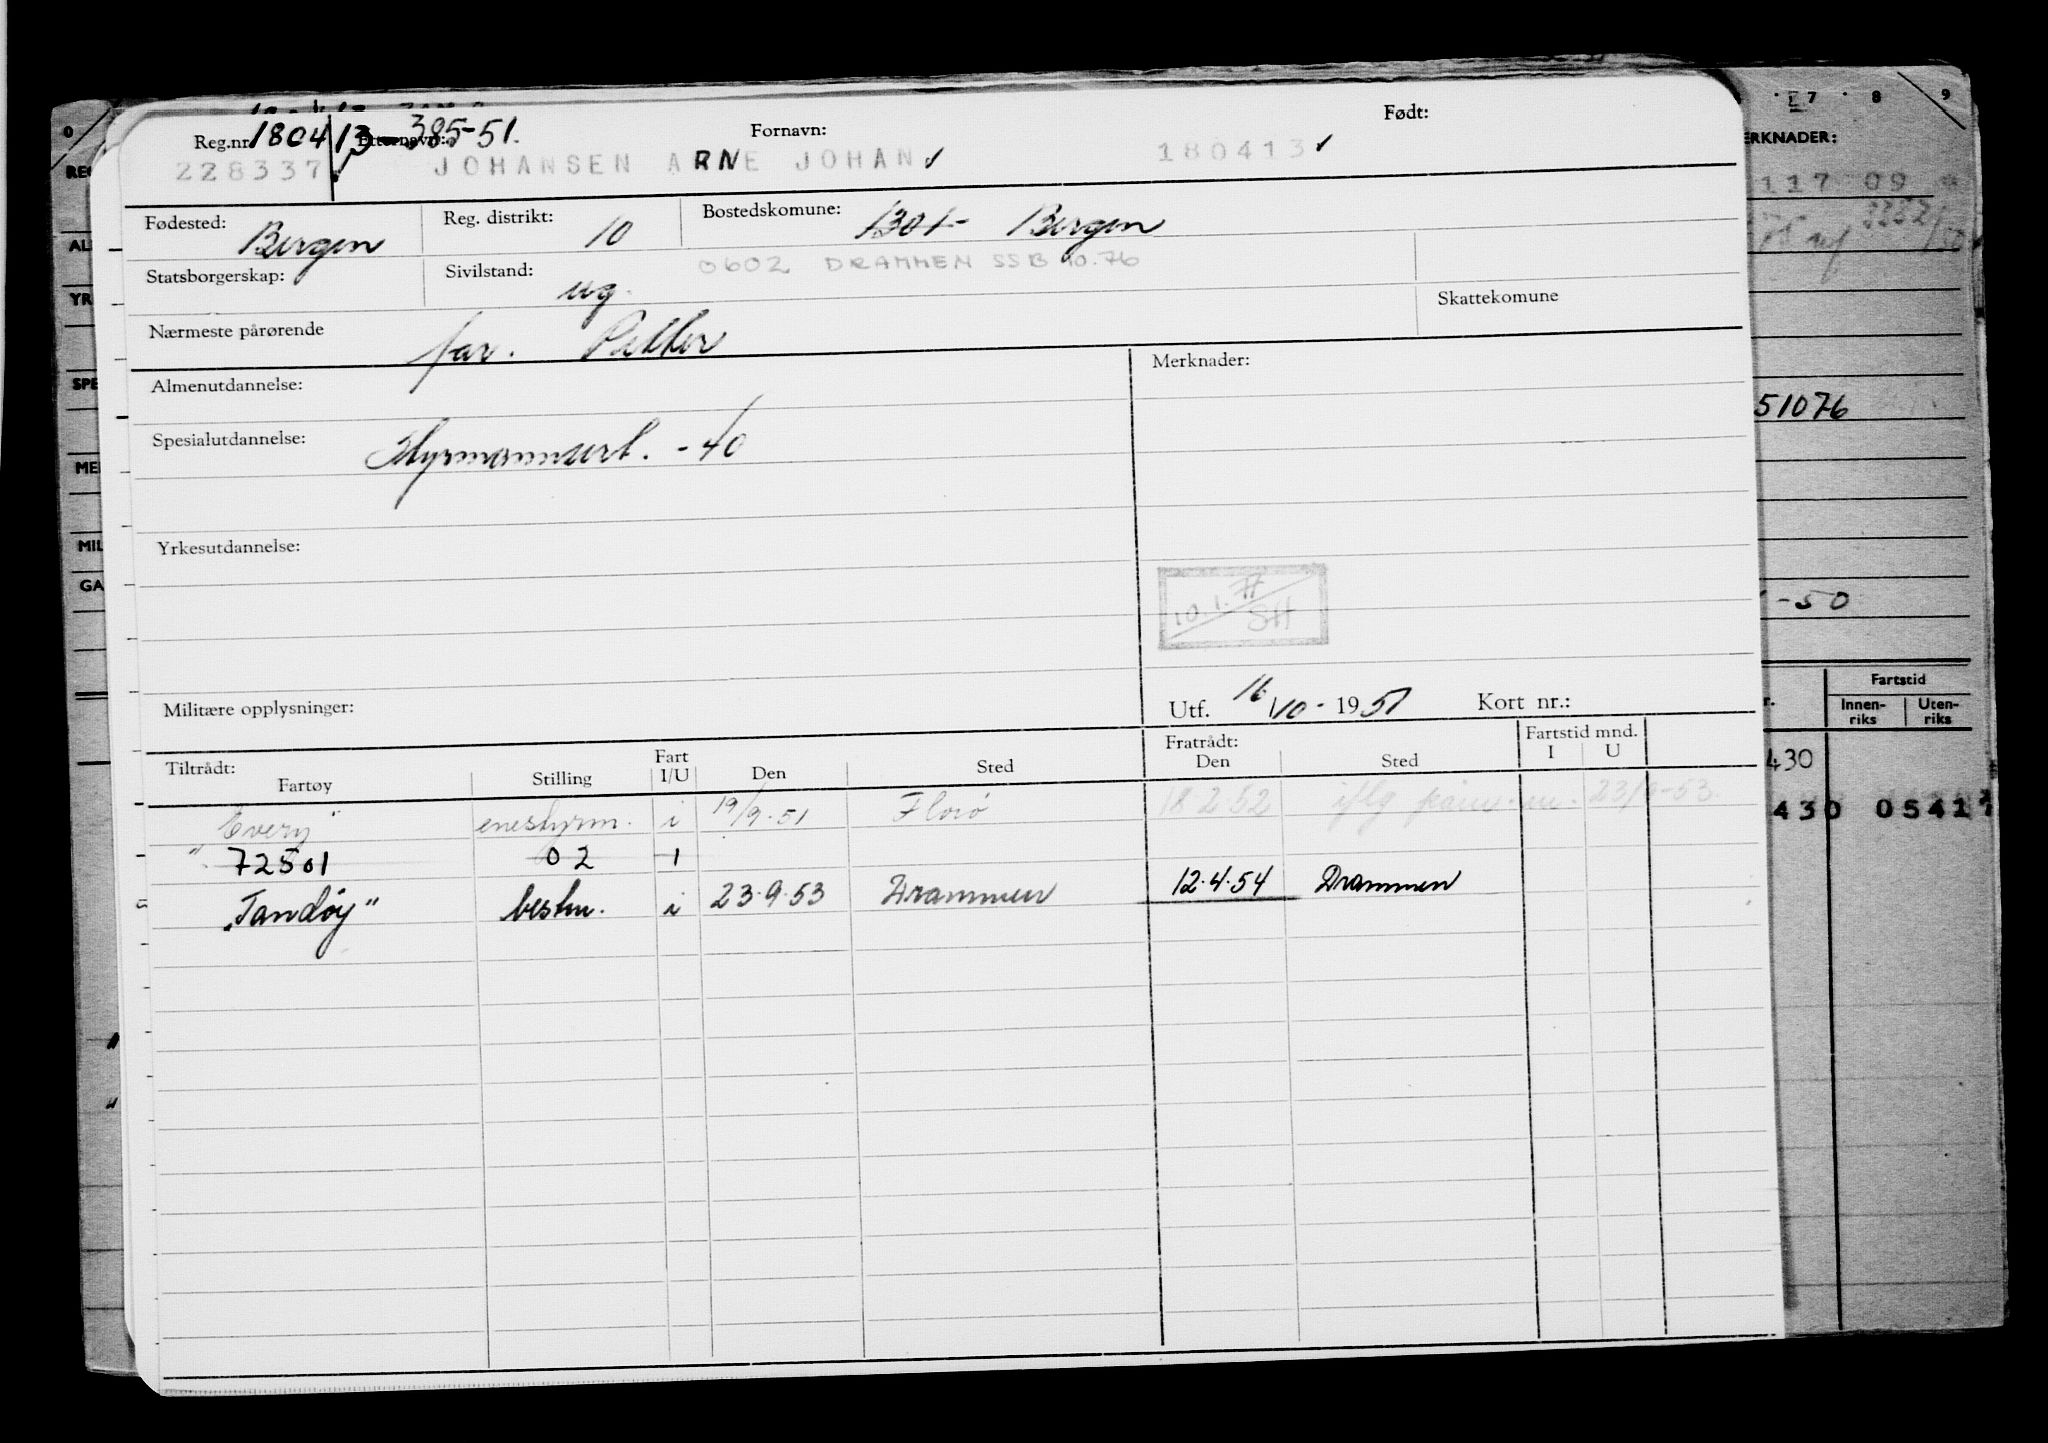 Reg.nr. 180413 385-51. Etternavn: Fornavn: Født:
228337 JOHANSEN ARNE JOHAN 180413
Fødested: Bergen Reg. distrikt: 10 Bostedskomune: 1301- Bergen
Statsborgerskap: Sivilstand: ug. 0602 DRAMMEN SSB 10.76
Nærmeste pårørende far. Petter Skattekomune
Almenutdannelse: Merknader:
Spesialutdannelse: Styrmannsert. -40
Yrkesutdannelse:
10.1.77 SH
Militære opplysninger: Utf. 16/10-1951 Kort nr.:
Tiltrådt: Fart Fratrådt: Fartstid mnd.
Fartøy Stilling I/U Den Sted Den Sted I U
"Every" enestyrm. i 19/9-51 Florø 18-2-52 iflg 23/9-53.
72501 02 1
"Tandøy" bestm. i 23.9.53 Drammen 12.4.54 Drammen
0
7 8 9
ERKNADER:
117 09
51076
-50
Fartstid
Innen-riks Uten-riks
430
430 05417
REG
AL
YR
SPE
MER
MIL
GA